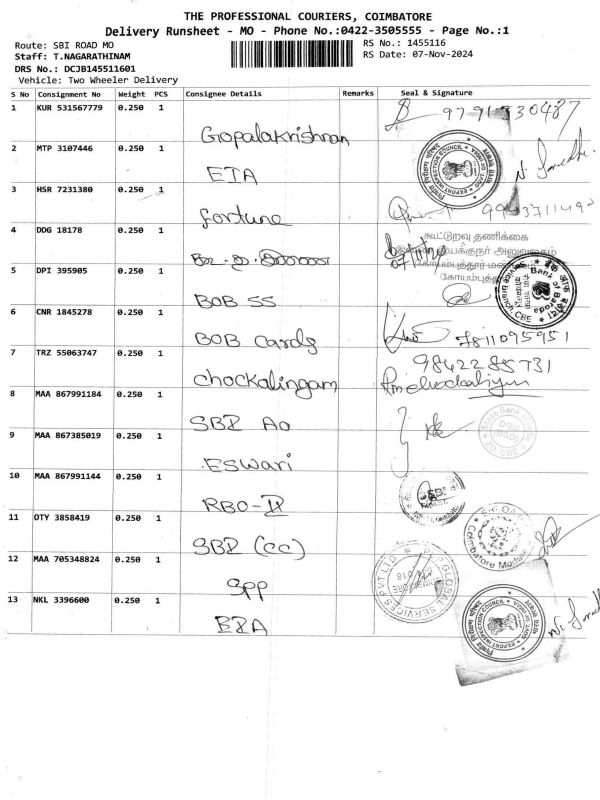 THE PROFESSIONAL COURIERS, COIMBATORE
Delivery Runsheet - MO - Phone No.:0422-3505555 - Page No.:1
Route: SBI ROAD MO
RS No.: 1455116
Staff: T.NAGARATHINAM
RS Date: 07-Nov-2024
DRS No.: DCJB145511601
Vehicle: Two Wheeler Delivery
S No Consignment No Weight PCS Consignee Details Remarks Seal & Signature
1 KUR 531567779 0.250 1 Gopalakrishnan
2 MTP 3107446 0.250 1 EIA
3 HSR 7231380 0.250 1 fortune
4 DDG 18178 0.250 1
கூட்டுறவு தணிக்கை
கோயம்புத்தூர்
5 DPI 395905 0.250 1 BOB SS
Bank of Baroda
6 CNR 1845278 0.250 1 BOB Cards 7811095951
7 TRZ 55063747 0.250 1 Chockalingam 9842285731
8 MAA 867991184 0.250 1 SBI AO
9 MAA 867385019 0.250 1 ESwari
10 MAA 867991144 0.250 1 RBO-II
SBI
11 OTY 3858419 0.250 1 SBI (CC)
Coimbatore Main
12 MAA 705348824 0.250 1 SPP
GLOBAL SERVICES PVT LTD
13 NKL 3396600 0.250 1 EIA
EXPORT INSPECTION COUNCIL